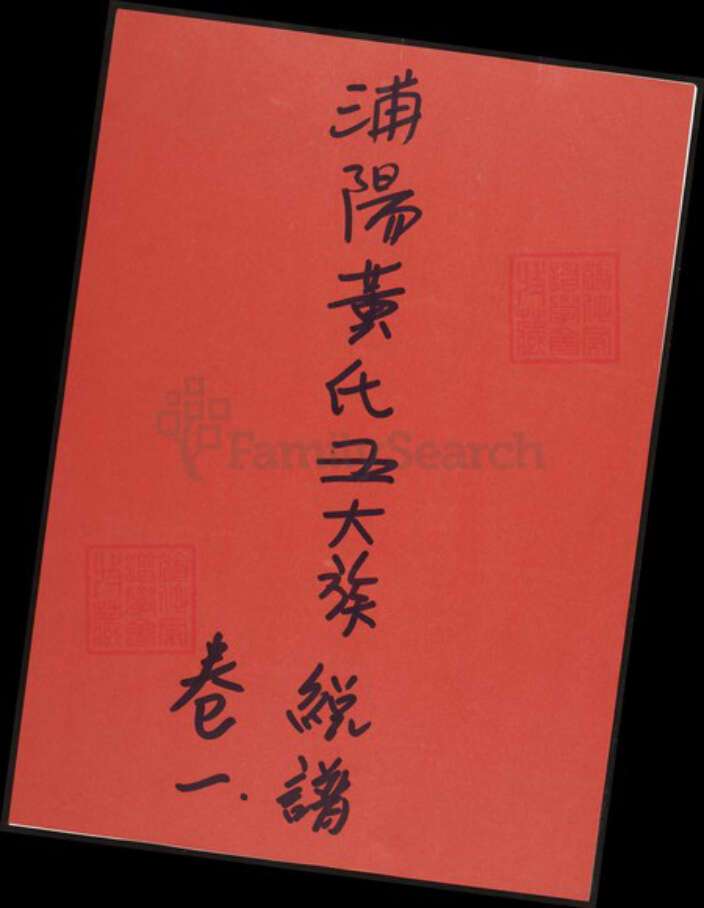 浦陽黃氏五大族
統譜
卷一.
FamilySearch